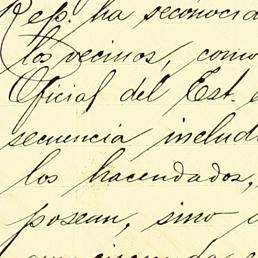 Rep. ha seconocid
los vecinos, como
Oficial del Est.
secuencia includ
los hacendados,
posean, sino